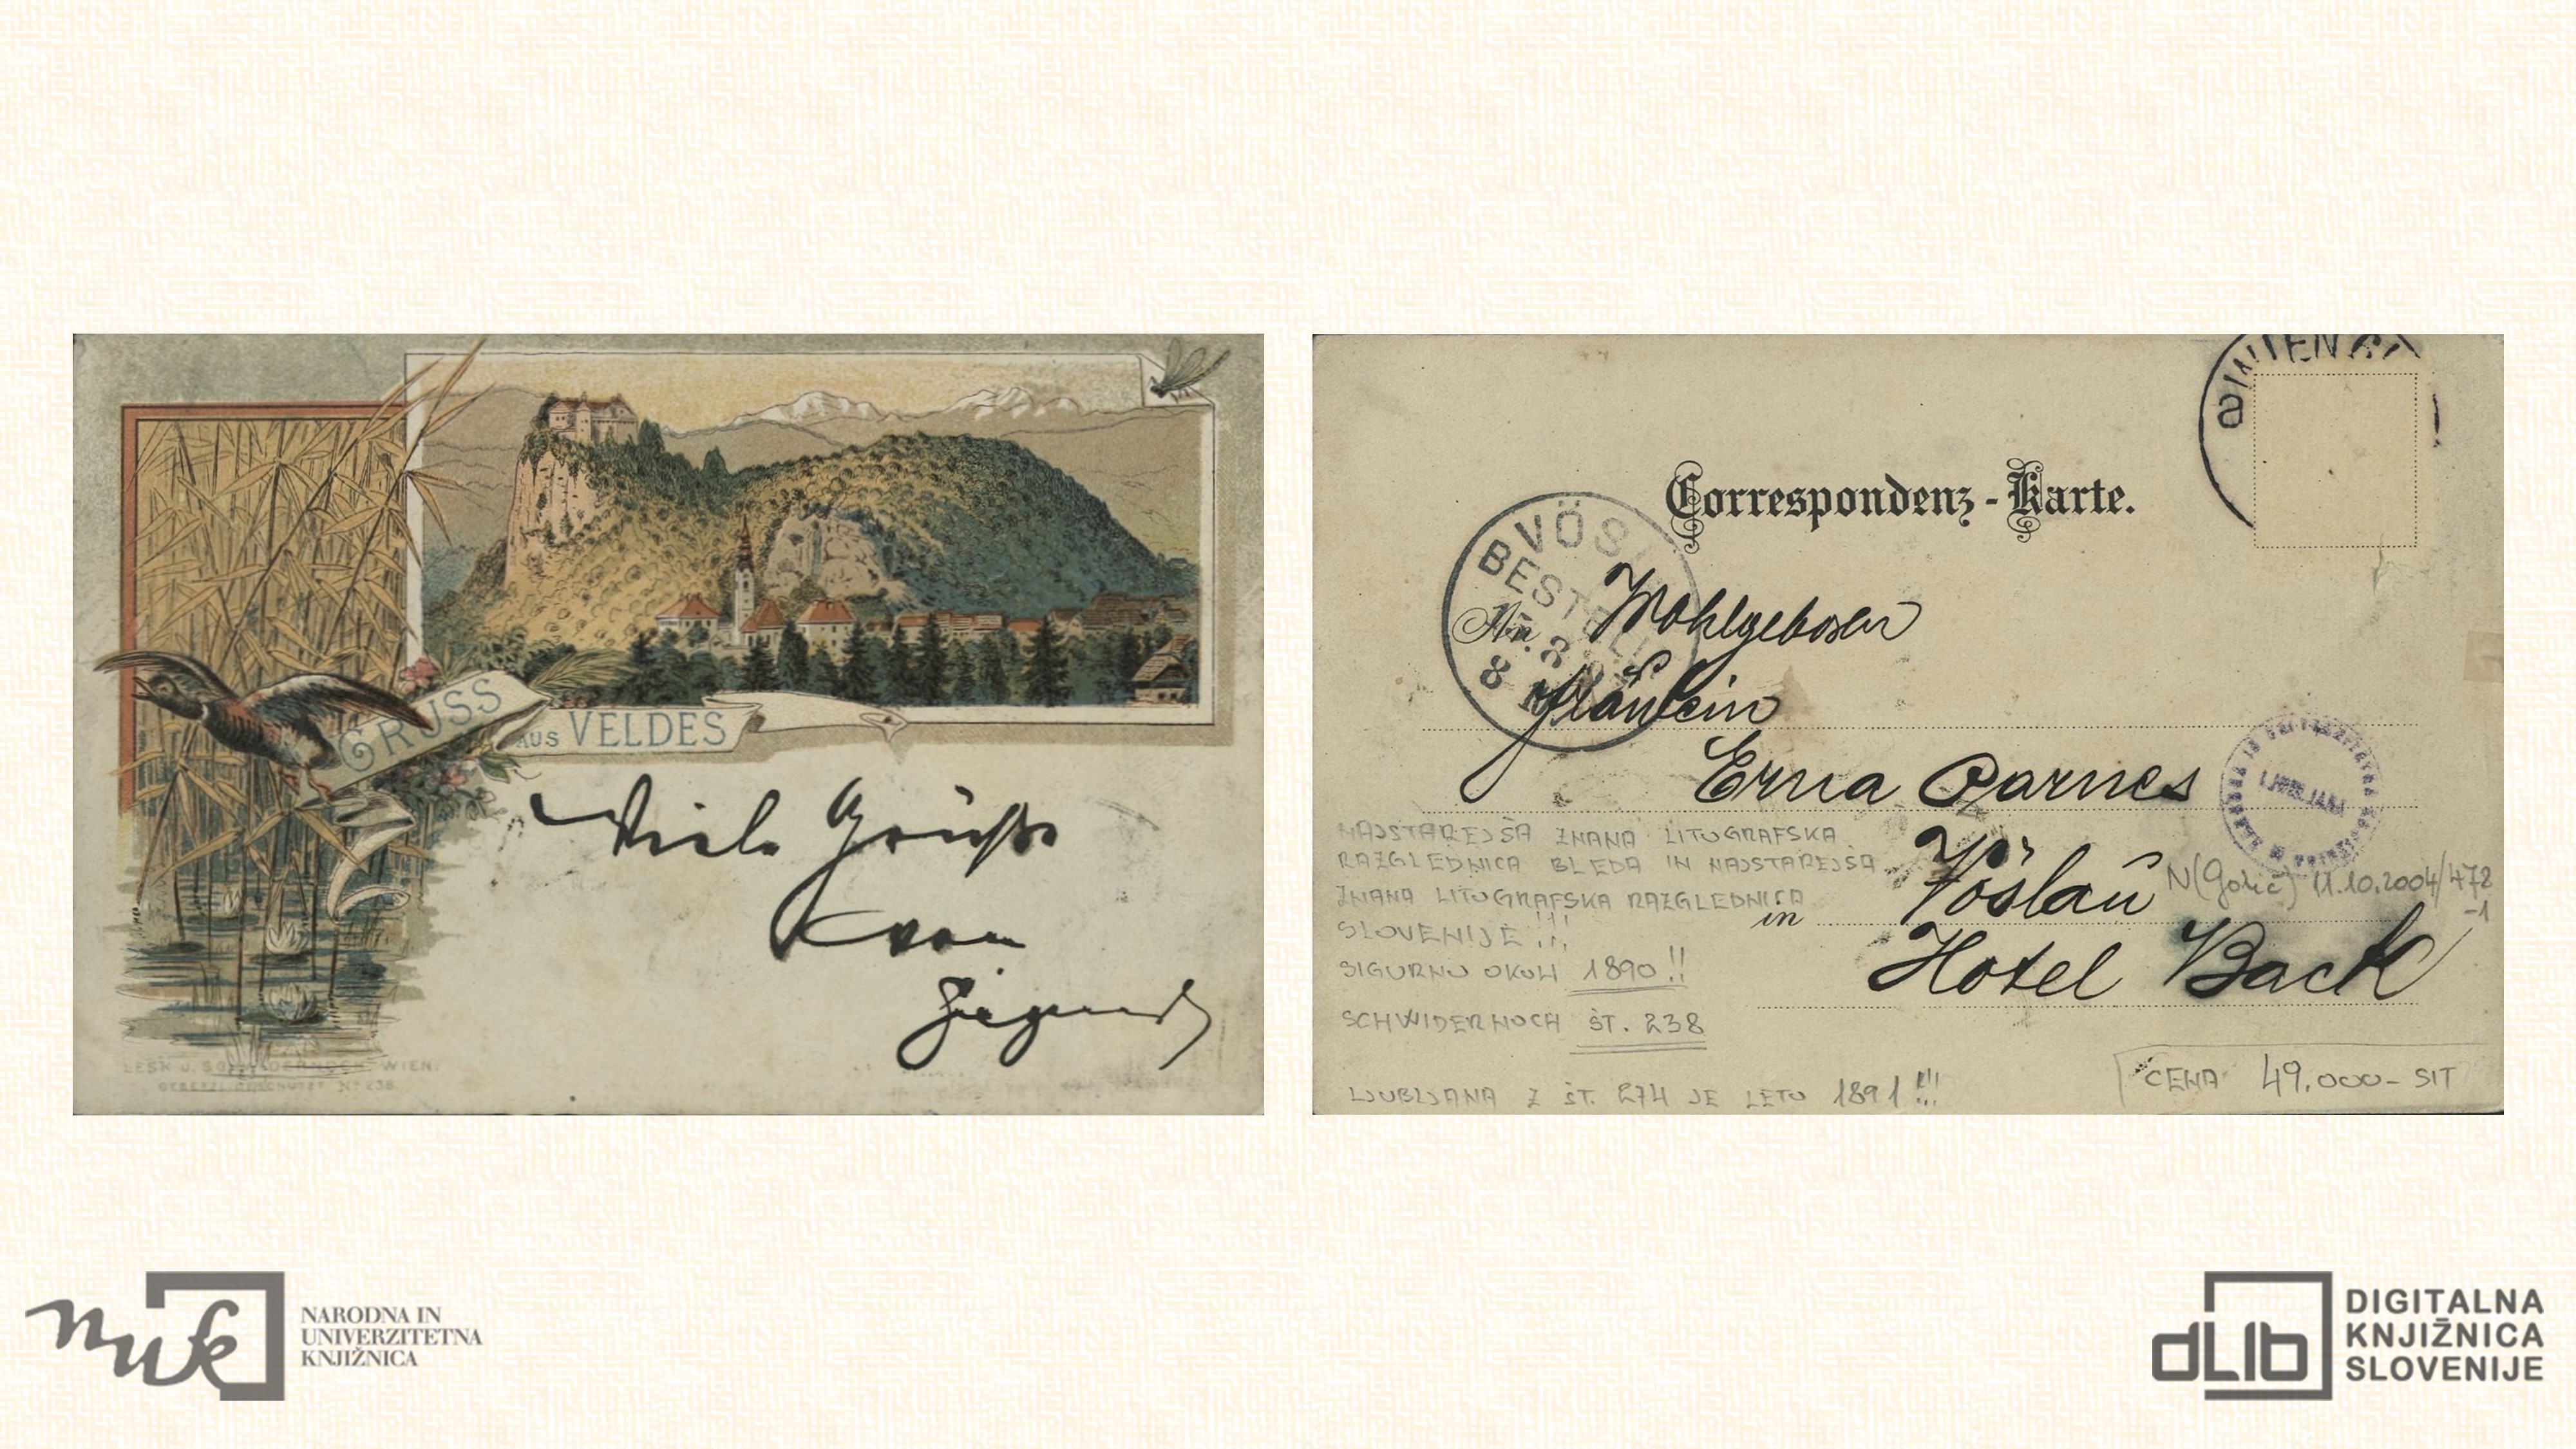 GRUSS
AUS VELDES
Viele Grüße
von
LESK U. SCHWIDERNOCH WIEN.
GESETZL. GESCHÜTZT No 238.
Correspondenz-Karte.
VÖS
BESTELLT
8
An Wohlgeboren
Fräulein
Erna Parnes
in Vöslau
Hotel Back
LJUBLJANA
NAJSTAREJŠA ZNANA LITOGRAFSKA
RAZGLEDNICA BLEDA IN NAJSTAREJŠA
ZNANA LITOGRAFSKA RAZGLEDNICA
SLOVENIJE !!!
SIGURNO OKOLI 1890 !!
SCHWIDERNOCH ŠT. 238
LJUBLJANA Z ŠT. 274 JE LETO 1891 !!!
11.10.2004/472
-1
CENA 49.000- SIT
nuk
NARODNA IN
UNIVERZITETNA
KNJIŽNICA
dLib
DIGITALNA
KNJIŽNICA
SLOVENIJE